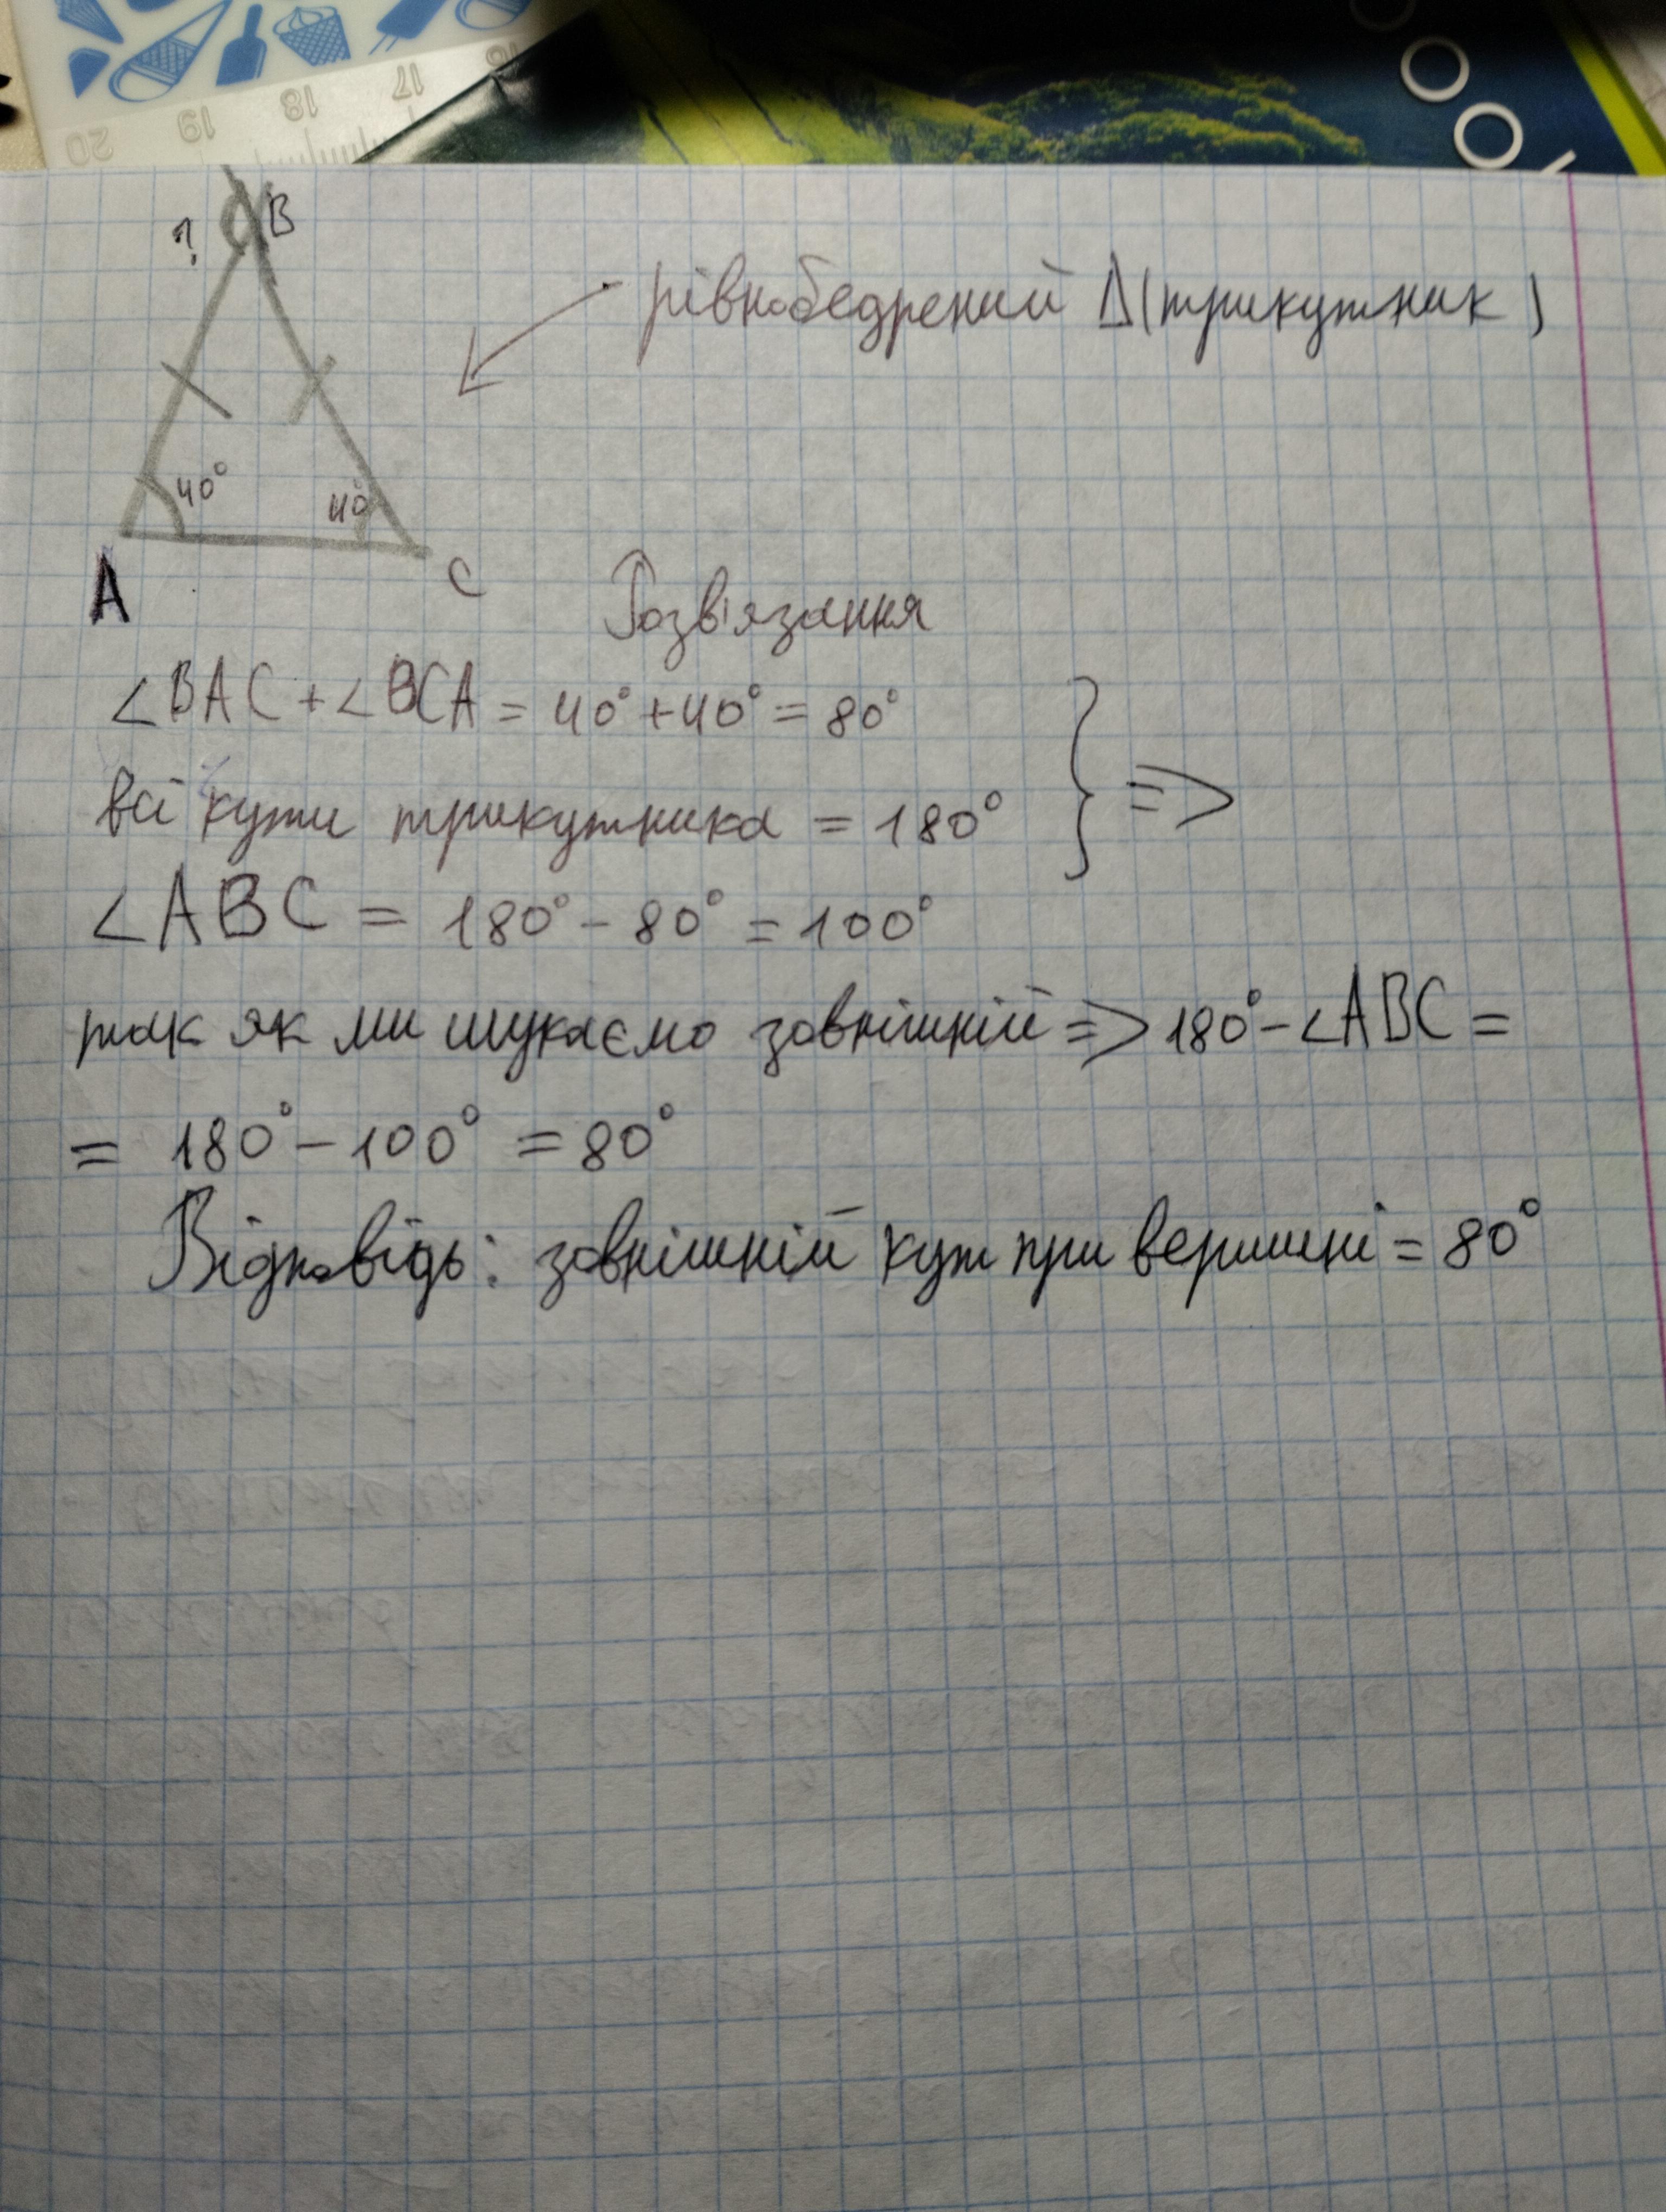 20 19 18 17 16
? B
рівнобедрений Δ(трикутник)
40° 40°
A C
Розв'язання
∠BAC + ∠BCA = 40° + 40° = 80°
всі кути трикутника = 180° } =>
∠ABC = 180° - 80° = 100°
так як ми шукаємо зовнішній => 180° - ∠ABC =
= 180° - 100° = 80°
Відповідь: зовнішній кут при вершині = 80°